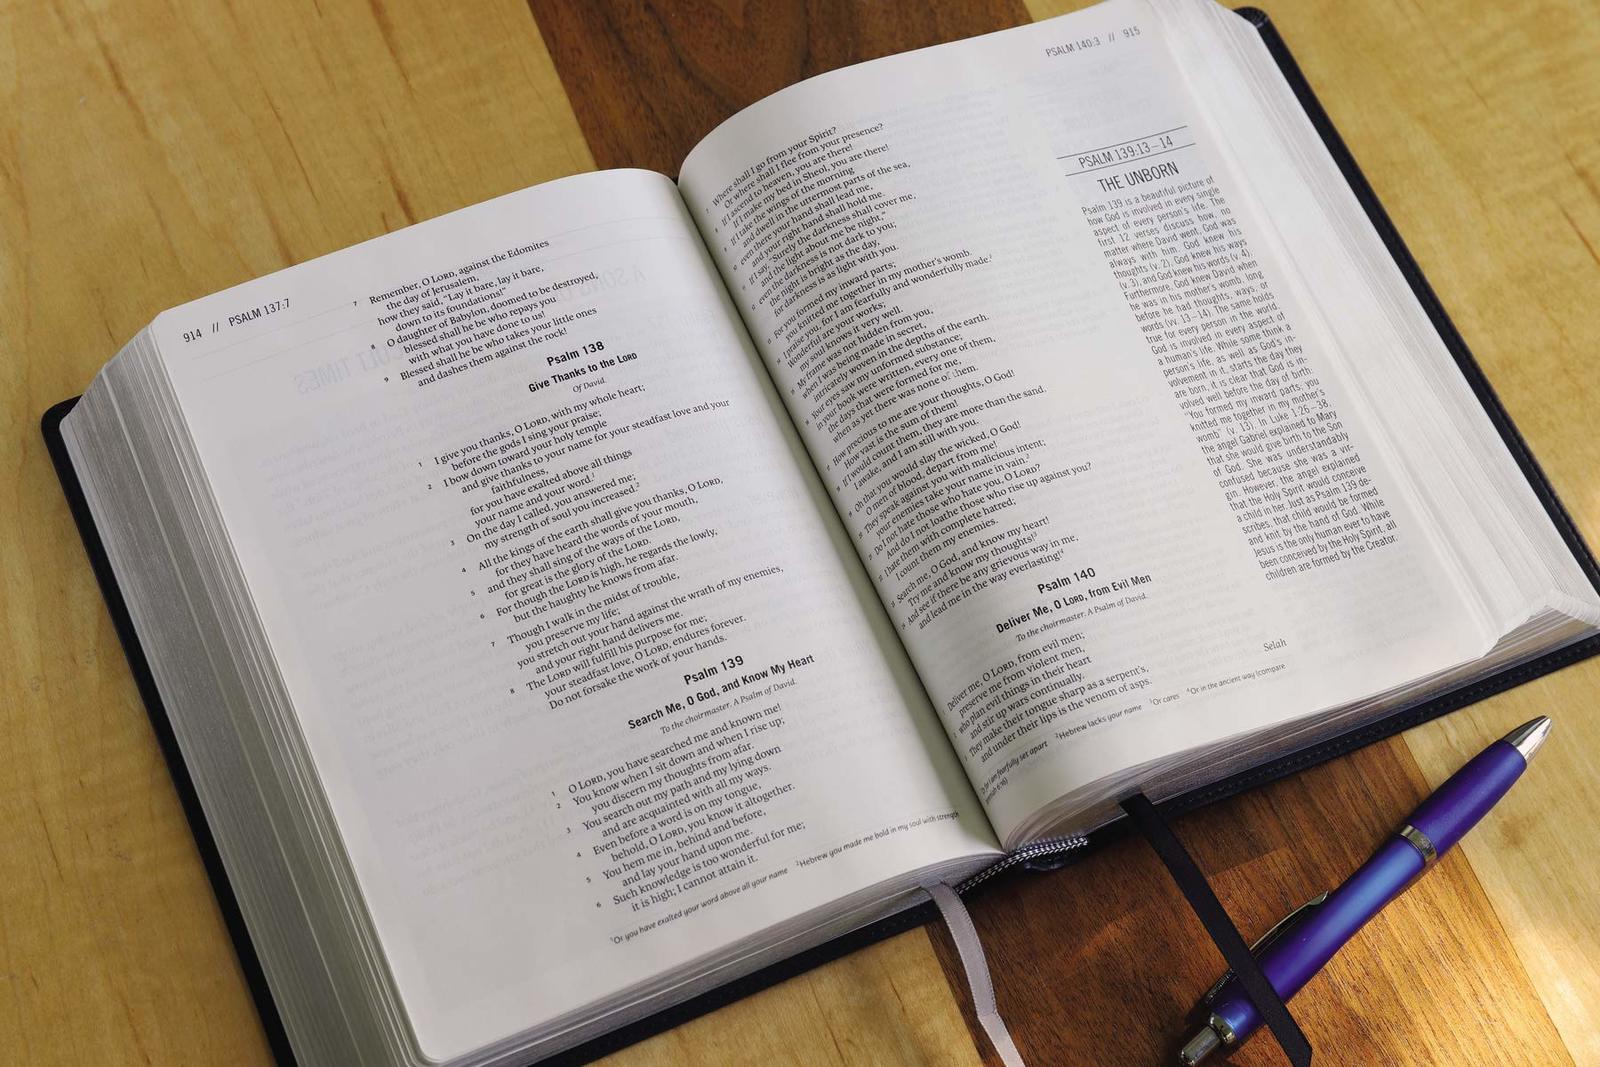 914 // PSALM 137:7
7 Remember, O LORD, against the Edomites
the day of Jerusalem,
how they said, "Lay it bare, lay it bare,
down to its foundations!"
8 O daughter of Babylon, doomed to be destroyed,
blessed shall he be who repays you
with what you have done to us!
9 Blessed shall he be who takes your little ones
and dashes them against the rock!
Psalm 138
Give Thanks to the LORD
Of David.
1 I give you thanks, O LORD, with my whole heart;
before the gods I sing your praise;
2 I bow down toward your holy temple
and give thanks to your name for your steadfast love and your
faithfulness,
for you have exalted above all things
your name and your word.1
3 On the day I called, you answered me;
my strength of soul you increased.2
4 All the kings of the earth shall give you thanks, O LORD,
for they have heard the words of your mouth,
5 and they shall sing of the ways of the LORD,
for great is the glory of the LORD.
6 For though the LORD is high, he regards the lowly,
but the haughty he knows from afar.
7 Though I walk in the midst of trouble,
you preserve my life;
you stretch out your hand against the wrath of my enemies,
and your right hand delivers me.
8 The LORD will fulfill his purpose for me;
your steadfast love, O LORD, endures forever.
Do not forsake the work of your hands.
Psalm 139
Search Me, O God, and Know My Heart
To the choirmaster. A Psalm of David.
1 O LORD, you have searched me and known me!
2 You know when I sit down and when I rise up;
you discern my thoughts from afar.
3 You search out my path and my lying down
and are acquainted with all my ways.
4 Even before a word is on my tongue,
behold, O LORD, you know it altogether.
5 You hem me in, behind and before,
and lay your hand upon me.
6 Such knowledge is too wonderful for me;
it is high; I cannot attain it.
1Or you have exalted your word above all your name 2Hebrew you made me bold in my soul with strength
PSALM 140:3 // 915
7 Where shall I go from your Spirit?
Or where shall I flee from your presence?
8 If I ascend to heaven, you are there!
If I make my bed in Sheol, you are there!
9 If I take the wings of the morning
and dwell in the uttermost parts of the sea,
10 even there your hand shall lead me,
and your right hand shall hold me.
11 If I say, "Surely the darkness shall cover me,
and the light about me be night,"
12 even the darkness is not dark to you;
the night is bright as the day,
for darkness is as light with you.
13 For you formed my inward parts;
you knitted me together in my mother's womb.
14 I praise you, for I am fearfully and wonderfully made.1
Wonderful are your works;
my soul knows it very well.
15 My frame was not hidden from you,
when I was being made in secret,
intricately woven in the depths of the earth.
16 Your eyes saw my unformed substance;
in your book were written, every one of them,
the days that were formed for me,
when as yet there was none of them.
17 How precious to me are your thoughts, O God!
How vast is the sum of them!
18 If I would count them, they are more than the sand.
I awake, and I am still with you.
19 Oh that you would slay the wicked, O God!
O men of blood, depart from me!
20 They speak against you with malicious intent;
your enemies take your name in vain.2
21 Do I not hate those who hate you, O LORD?
And do I not loathe those who rise up against you?
22 I hate them with complete hatred;
I count them my enemies.
23 Search me, O God, and know my heart!
Try me and know my thoughts!3
24 And see if there be any grievous way in me,
and lead me in the way everlasting!4
Psalm 140
Deliver Me, O LORD, from Evil Men
To the choirmaster. A Psalm of David.
Deliver me, O LORD, from evil men;
preserve me from violent men,
2 who plan evil things in their heart
and stir up wars continually.
3 They make their tongue sharp as a serpent's,
and under their lips is the venom of asps.
Selah
for I am fearfully set apart 2Hebrew lacks your name 3Or cares 4Or in the ancient way (compare
Jeremiah 6:16)
PSALM 139:13–14
THE UNBORN
Psalm 139 is a beautiful picture of
how God is involved in every single
aspect of every person's life. The
first 12 verses discuss how, no
matter where David went, God was
always with him. God knew his
thoughts (v. 2), God knew his ways
(v. 3), and God knew his words (v. 4).
Furthermore, God knew David when
he was in his mother's womb, long
before he had thoughts, ways, or
words (vv. 13–14). The same holds
true for every person in the world.
God is involved in every aspect of
a human's life. While some think a
person's life, as well as God's in-
volvement in it, starts the day they
are born, it is clear that God is in-
volved well before the day of birth:
"You formed my inward parts; you
knitted me together in my mother's
womb" (v. 13). In Luke 1:26–38,
the angel Gabriel explained to Mary
that she would give birth to the Son
of God. She was understandably
confused because she was a vir-
gin. However, the angel explained
that the Holy Spirit would conceive
a child in her. Just as Psalm 139 de-
scribes, that child would be formed
and knit by the hand of God. While
Jesus is the only human ever to have
been conceived by the Holy Spirit, all
children are formed by the Creator.